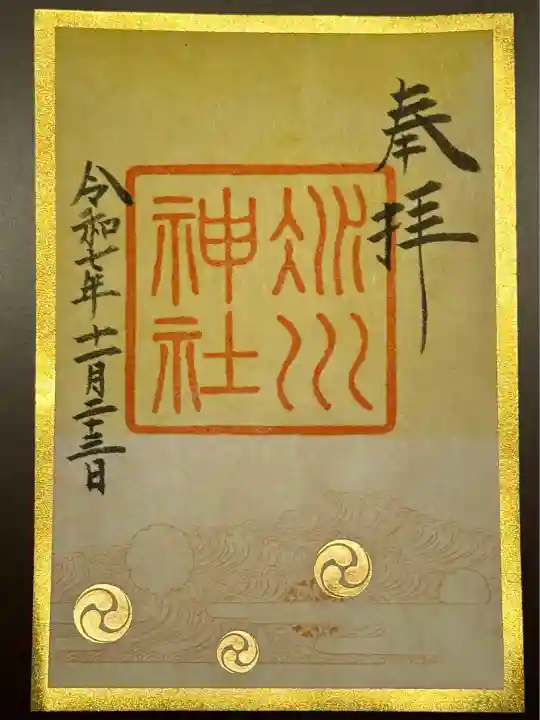 奉拝
冰川
神社
令和七年十一月二十三日